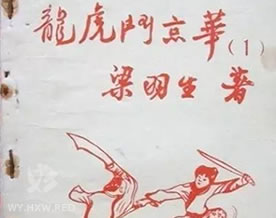 龍虎鬥京華(1)
梁羽生 著
WY.HXW.RED